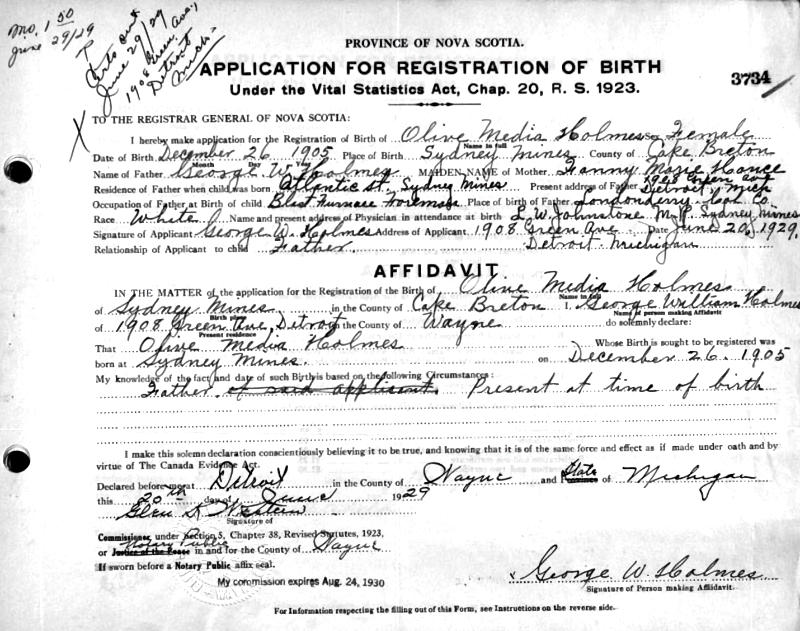 Mo. 1 50
June 29/29
Certs out
June 29/29
1908 Green Ave,
Detroit
Mich.
PROVINCE OF NOVA SCOTIA.
APPLICATION FOR REGISTRATION OF BIRTH
3734
Under the Vital Statistics Act, Chap. 20, R. S. 1923.
X TO THE REGISTRAR GENERAL OF NOVA SCOTIA:
I hereby make application for the Registration of Birth of Olive Media Holmes Female
Name in full
Date of Birth December 26 1905 Place of Birth Sydney Mines County of Cape Breton
Month Day Year
Name of Father George W Holmes MAIDEN NAME of Mother Fanny Mazie
1908 Green Ave
Residence of Father when child was born Atlantic St. Sydney Mines Present address of Father Detroit, Mich
Occupation of Father at Birth of child Blast Furnace Foreman Place of birth of Father Londonderry Col. Co.
Race White Name and present address of Physician in attendance at birth L. W. Johnstone M.P. Sydney Mines
Signature of Applicant George W. Holmes Address of Applicant 1908 Green Ave Date June 20, 1929.
Relationship of Applicant to child Father Detroit Michigan
AFFIDAVIT
IN THE MATTER of the application for the Registration of the Birth of Olive Media Holmes
Name in full
of Sydney Mines in the County of Cape Breton I, George William Holmes
Birth place Name of person making Affidavit
of 1908 Green Ave, Detroit in the County of Wayne do solemnly declare:
Present residence
That Olive Media Holmes Whose Birth is sought to be registered was
born at Sydney Mines on December 26. 1905
My knowledge of the fact and date of such Birth is based on the following Circumstances:
Father of said applicant. Present at time of birth
I make this solemn declaration conscientiously believing it to be true, and knowing that it is of the same force and effect as if made under oath and by
virtue of The Canada Evidence Act.
Declared before me at Detroit in the County of Wayne and Province State of Michigan
this 20th day of June 1929
Glen
Signature of
Commissioner, under Section 5, Chapter 38, Revised Statutes, 1923,
Notary Public
or Justice of the Peace in and for the County of Wayne
If sworn before a Notary Public affix seal.
My commission expires Aug. 24, 1930
George W Holmes
Signature of Person making Affidavit.
For Information respecting the filling out of this Form, see Instructions on the reverse side.